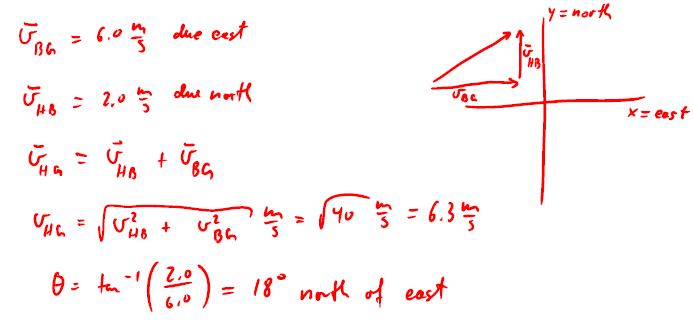 v̄_BG = 6.0 m/s due east
v̄_HB = 2.0 m/s due north
v̄_HG = v̄_HB + v̄_BG
v_HG = √(v²_HB + v²_BG) m/s = √40 m/s = 6.3 m/s
θ = tan⁻¹(2.0/6.0) = 18° north of east
y = north
v̄_HB
v̄_BG
x = east